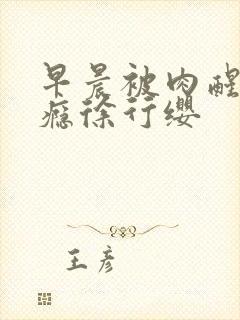 早晨被肉醒
瘾徐行缨
王彦